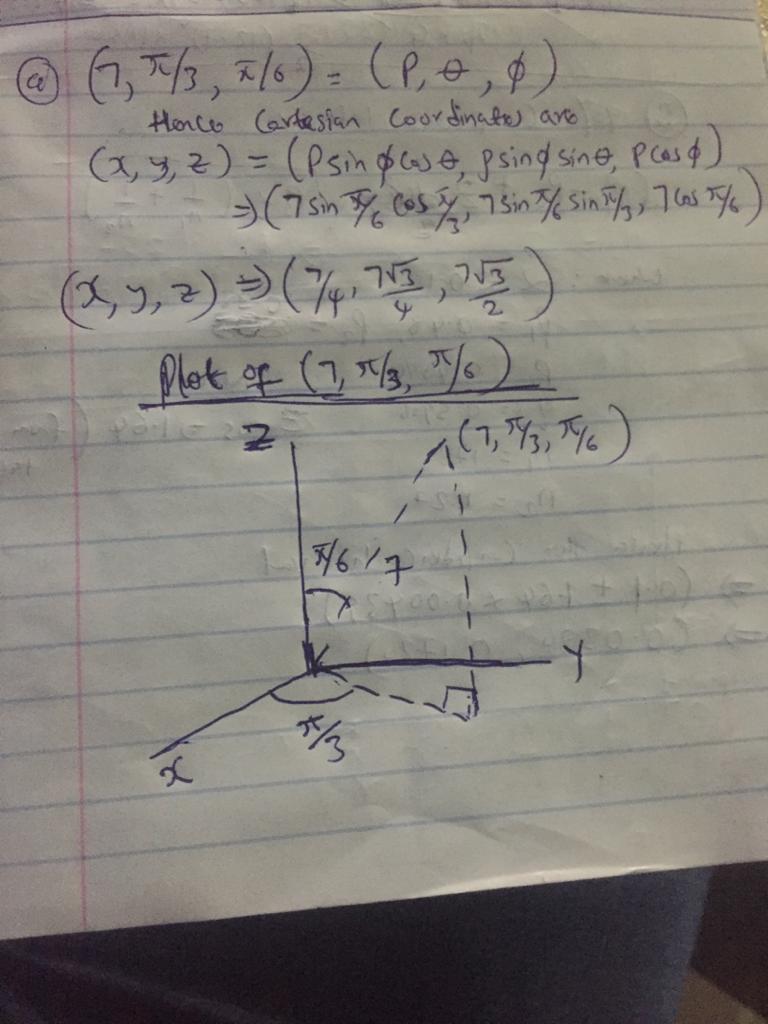 (a) (7, π/3, π/6) = (ρ, θ, φ)
Hence Cartesian Coordinates are
(x, y, z) = (ρ sin φ cos θ, ρ sin φ sin θ, ρ cos φ)
⇒ (7 sin π/6 cos π/3, 7 sin π/6 sin π/3, 7 cos π/6)
(x, y, z) ⇒ (7/4, 7√3/4, 7√3/2)
Plot of (7, π/3, π/6)
Z
(7, π/3, π/6)
π/6
7
Y
π/3
x